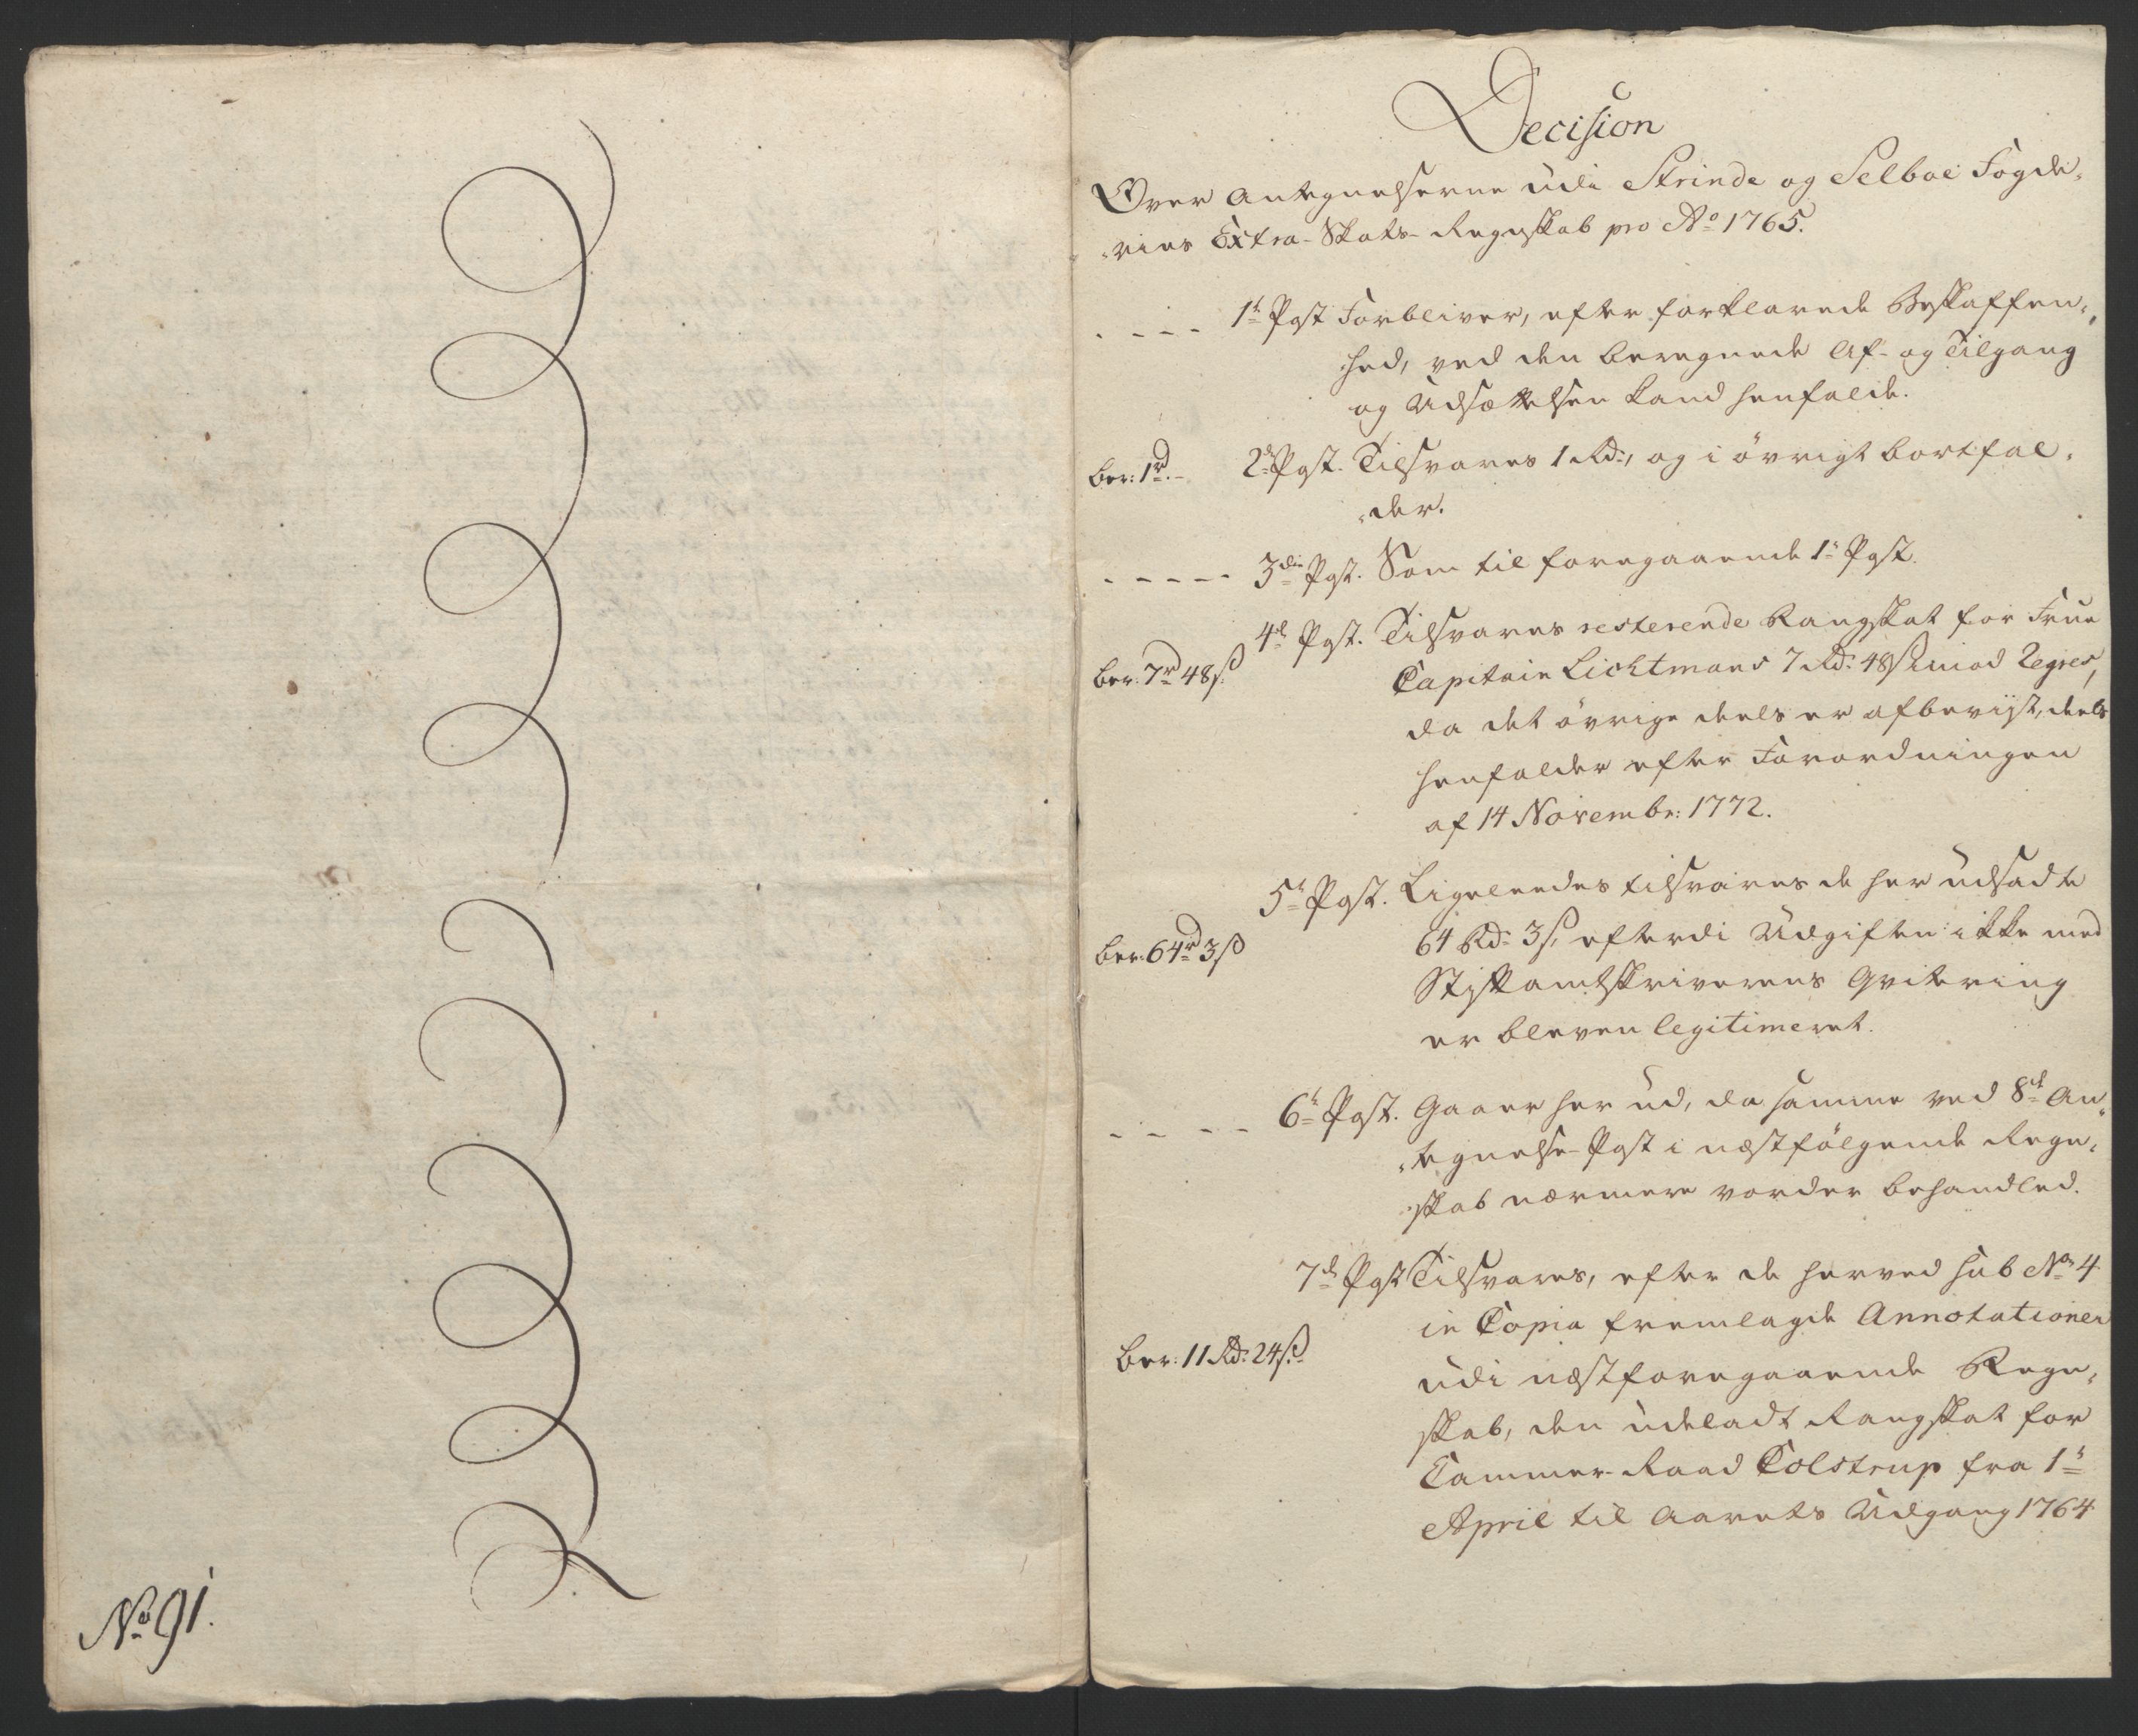 No 91.
Decision
Over Antegnelserne udi Strinde og Selboe Fogde„
„ries Extra-Skats-Regnskab pro Ao 1765.
1te Post Forbliver, efter forklarede Beskaffen„
hed, ved den beregnede Af- og Tilgang
og Udsættelsen kand henfalde.
ber: 1rd.- 2den Post. Tilsvares 1 Rd:, og i övrigt bortfal„
„der.
3die Post. Som til foregaaende 1te Post.
4de Post. Tilsvares resterende Rangskat for Frue
ber: 7rd 48ß Capitain Lichtmans 7 Rd: 48ß imod Regres,
da det övrige deels er afbeviist, deels
henfalder efter Forordningen
af 14 Novembr: 1772.
5te Post. Ligeleedes tilsvares de her udsadte
ber: 64rd 3ß 64 Rd: 3ß, efterdi Udgiften ikke med
Stiftamtskriverens Qvitering
er bleven legitimeret.
6te Post. Gaaer her ud, da samme ved 8de An„
„tegnelse-Post i næstfölgende Regn„
„skab nærmere vorder behandled.
7de Post Tilsvares, efter de herved sub No 4
in Copia fremlagde Annotationer
ber: 11 Rd: 24ß.- udi næstforegaaende Regn„
skab, den udeladt Rangskat for
Cammer-Raad Colstrup fra 1te
April til Aarets Udgang 1764